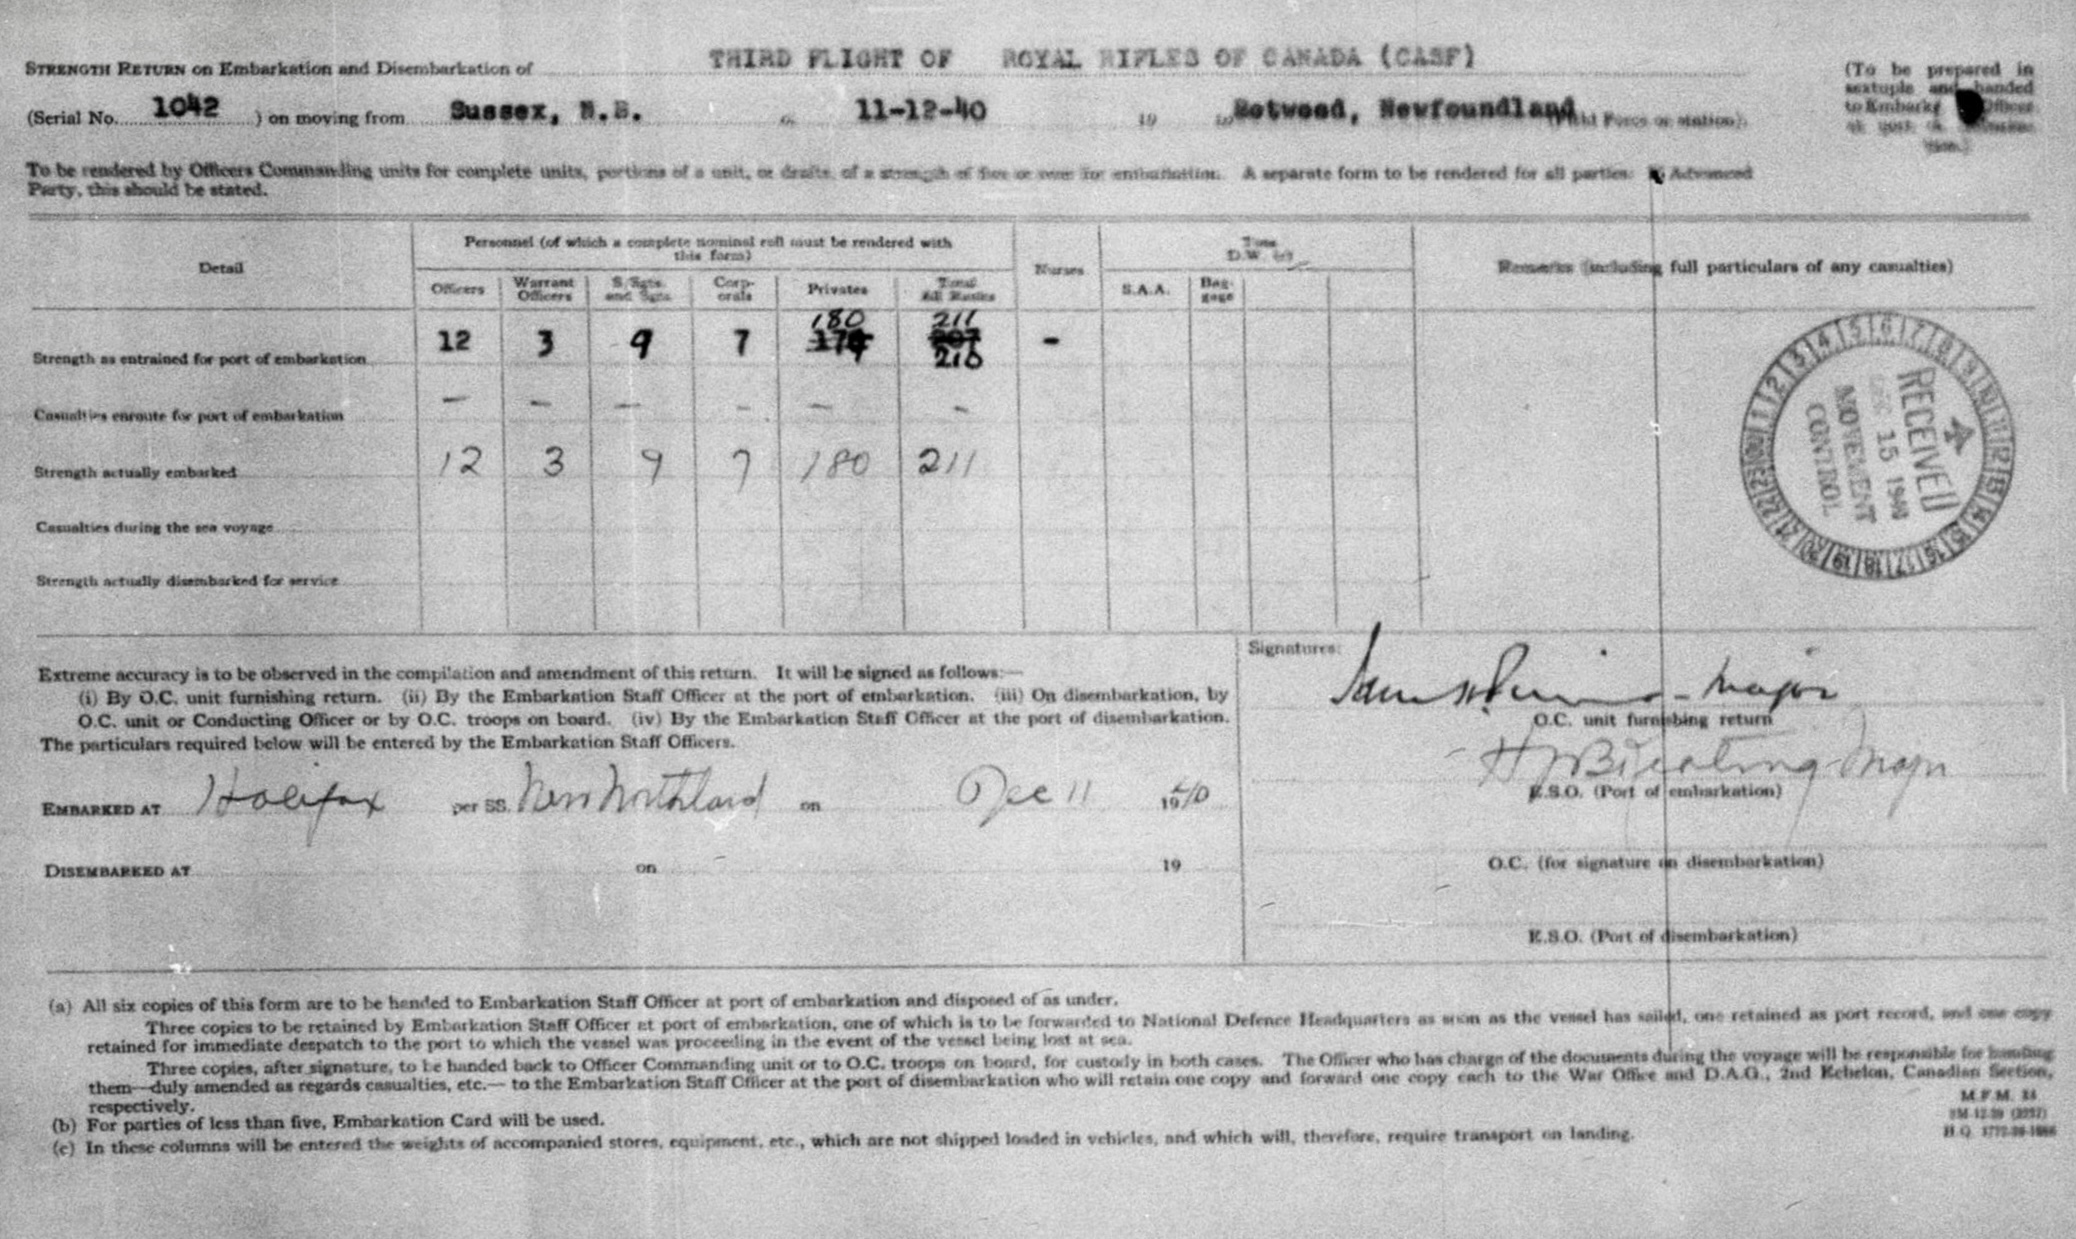 THIRD FLIGHT OF ROYAL RIFLES OF CANADA (CASF)
STRENGTH RETURN on Embarkation and Disembarkation of
(Serial No. 1042 ) on moving from Sussex, N.B. 11-12-40 19 Botwood, Newfoundland (Field Force or station).
(To be prepared in
sextuple and handed
to Embarkn Officer
To be rendered by Officers Commanding units for complete units, portions of a unit, or drafts, of a strength of five or over for embarkation. A separate form to be rendered for all parties. If Advanced
Party, this should be stated.
Detail
Personnel (of which a complete nominal roll must be rendered with
this form)
Officers
Warrant
Officers
S/Sgts.
and Sgts.
Corp-
orals
Privates
Total
All Ranks
Nurses
Tons
D.W.
S.A.A.
Bag-
gage
Remarks (including full particulars of any casualties)
180 211
Strength as entrained for port of embarkation 12 3 9 7 207 -
210
Casualties enroute for port of embarkation — — — — — —
Strength actually embarked 12 3 9 7 180 211
Casualties during the sea voyage
Strength actually disembarked for service
1 2 3 4 5 6 7 8 9 10 11 12 13 14 15 16 17 18 19 20 21 22 23
RECEIVED
DEC 15 1940
MOVEMENT
CONTROL
Extreme accuracy is to be observed in the compilation and amendment of this return. It will be signed as follows:—
(i) By O.C. unit furnishing return. (ii) By the Embarkation Staff Officer at the port of embarkation. (iii) On disembarkation, by
O.C. unit or Conducting Officer or by O.C. troops on board. (iv) By the Embarkation Staff Officer at the port of disembarkation.
The particulars required below will be entered by the Embarkation Staff Officers.
EMBARKED AT Halifax per SS. New Northland on Dec 11 1940
DISEMBARKED AT on 19
Signatures:
Major
O.C. unit furnishing return
Major
E.S.O. (Port of embarkation)
O.C. (for signature on disembarkation)
E.S.O. (Port of disembarkation)
(a) All six copies of this form are to be handed to Embarkation Staff Officer at port of embarkation and disposed of as under.
Three copies to be retained by Embarkation Staff Officer at port of embarkation, one of which is to be forwarded to National Defence Headquarters as soon as the vessel has sailed, one retained as port record, and one copy
retained for immediate despatch to the port to which the vessel was proceeding in the event of the vessel being lost at sea.
Three copies, after signature, to be handed back to Officer Commanding unit or to O.C. troops on board, for custody in both cases. The Officer who has charge of the documents during the voyage will be responsible for handing
them—duly amended as regards casualties, etc.— to the Embarkation Staff Officer at the port of disembarkation who will retain one copy and forward one copy each to the War Office and D.A.G., 2nd Echelon, Canadian Section,
respectively.
(b) For parties of less than five, Embarkation Card will be used.
(c) In these columns will be entered the weights of accompanied stores, equipment, etc., which are not shipped loaded in vehicles, and which will, therefore, require transport on landing.
M.F.M. 24
H.Q.